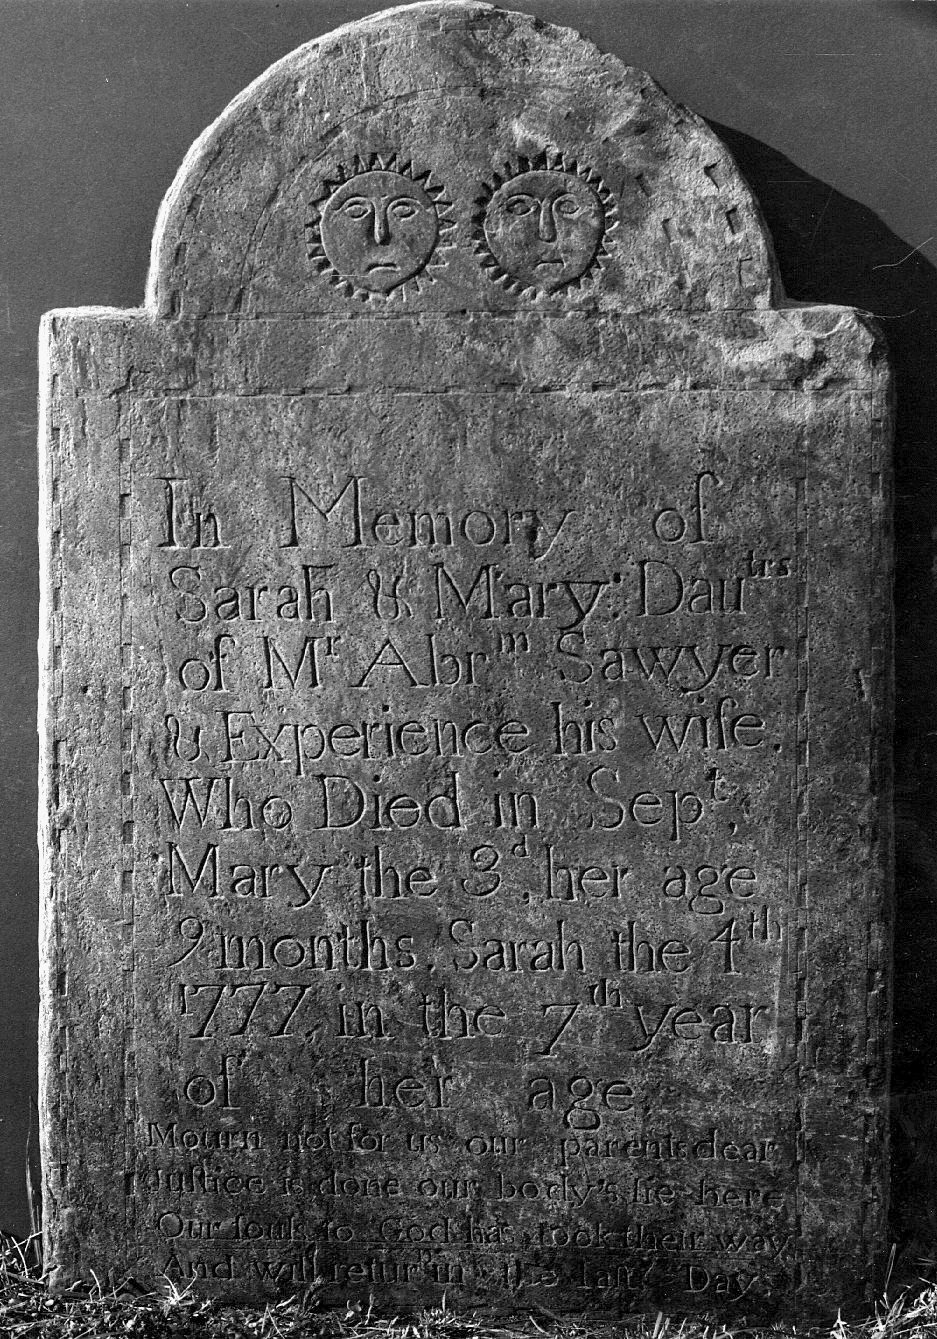 In Memory of
Sarah & Mary: Dautrs
of Mr Abrm Sawyer
& Experience his wife.
Who Died in Sept,
Mary the 3d, her age
9 months, Sarah the 4th
1777, in the 7th year
of her age
Mourn not for us our parents dear
Juſtice is done our body's lie here
Our ſouls to God has took their way
And will return in the laſt Day